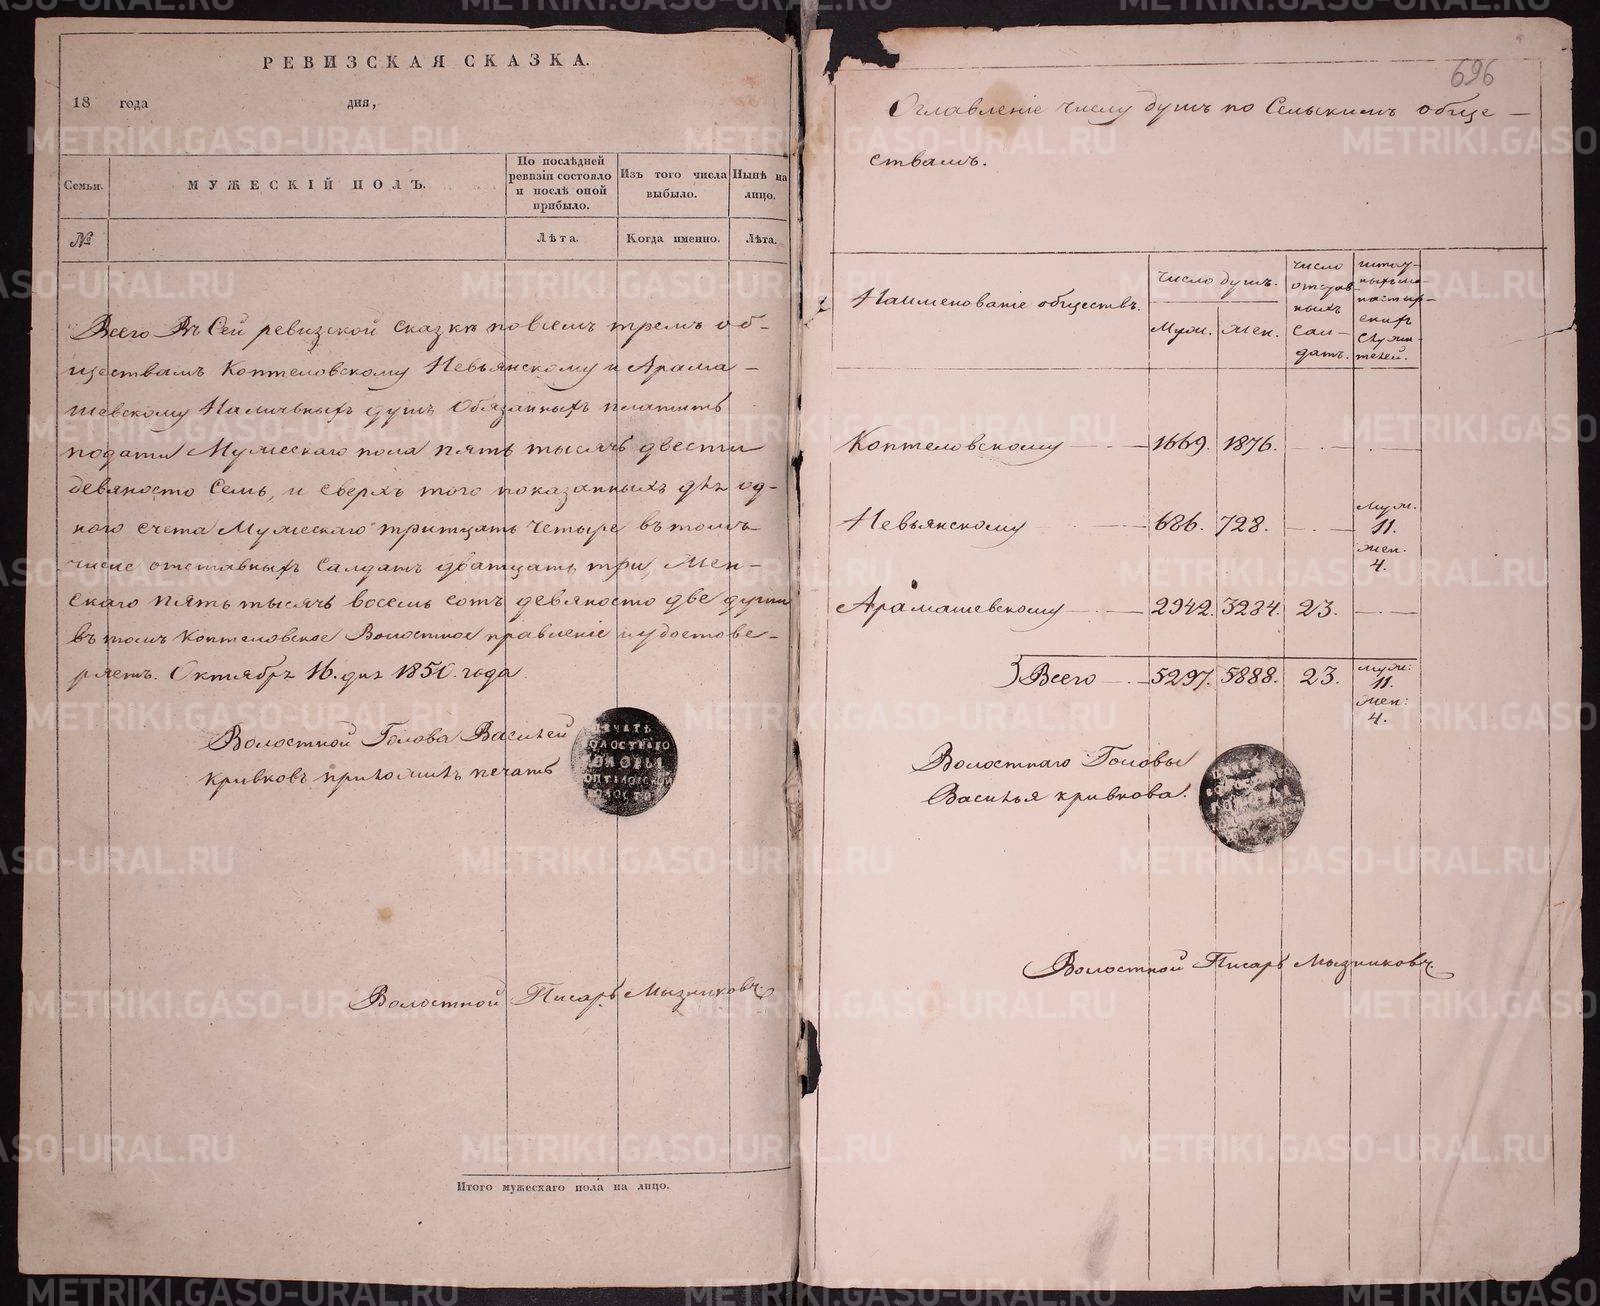 РЕВИЗСКАЯ СКАЗКА.
18 года дня,
Семьи.
МУЖЕСКІЙ ПОЛЪ.
По послѣдней
ревизіи состояло
и послѣ оной
прибыло.
Изъ того числа
выбыло.
Нынѣ на
лицо.
№
Лѣта.
Когда именно.
Лѣта.
Всего въ Сей ревизской сказкѣ по всемъ тремъ об-
ществамъ Коптеловскому Невьянскому и Арама-
шевскому Наличныхъ душъ Обязанныхъ платить
подати Мужескаго пола пять тысячь двести
девяносто Семь, и сверхъ того показанныхъ для од-
ного счета Мужескаго тритцать четыре въ томъ
числе отставныхъ Салдатъ дватцать три Жен-
скаго пять тысячь восемь сотъ девяносто две души
въ томъ Коптеловское Волостное правленіе и удостове-
ряетъ. Октября 16. дня 1850. года
Волостной Голова Василей
кривковъ приложилъ печать
ПЕЧАТЬ
ВОЛОСТНАГО
ГОЛОВЫ
КОПТЕЛОВСКОЙ
ВОЛОСТИ
Волостной Писарь Мызниковъ.
Итого мужескаго пола на лицо.
696
Оглавленіе числу душъ по Сельскимъ обще-
ствамъ.
Наименованіе обществъ.
Число душъ.
Муж. жен.
число
отстав-
ныхъ
сал-
датъ.
штат-
ныхъ мо
настыр-
скихъ
служи-
телей.
Коптеловскому 1669. 1876.
Невьянскому 686. 728. муж. 11. жен. 4.
Арамашевскому 2942. 3284. 23.
Всего 5297. 5888. 23. муж: 11. жен: 4.
Волостнаго Головы
Василья кривкова.
Волостной Писарь Мызниковъ.
METRIKI.GASO-URAL.RU